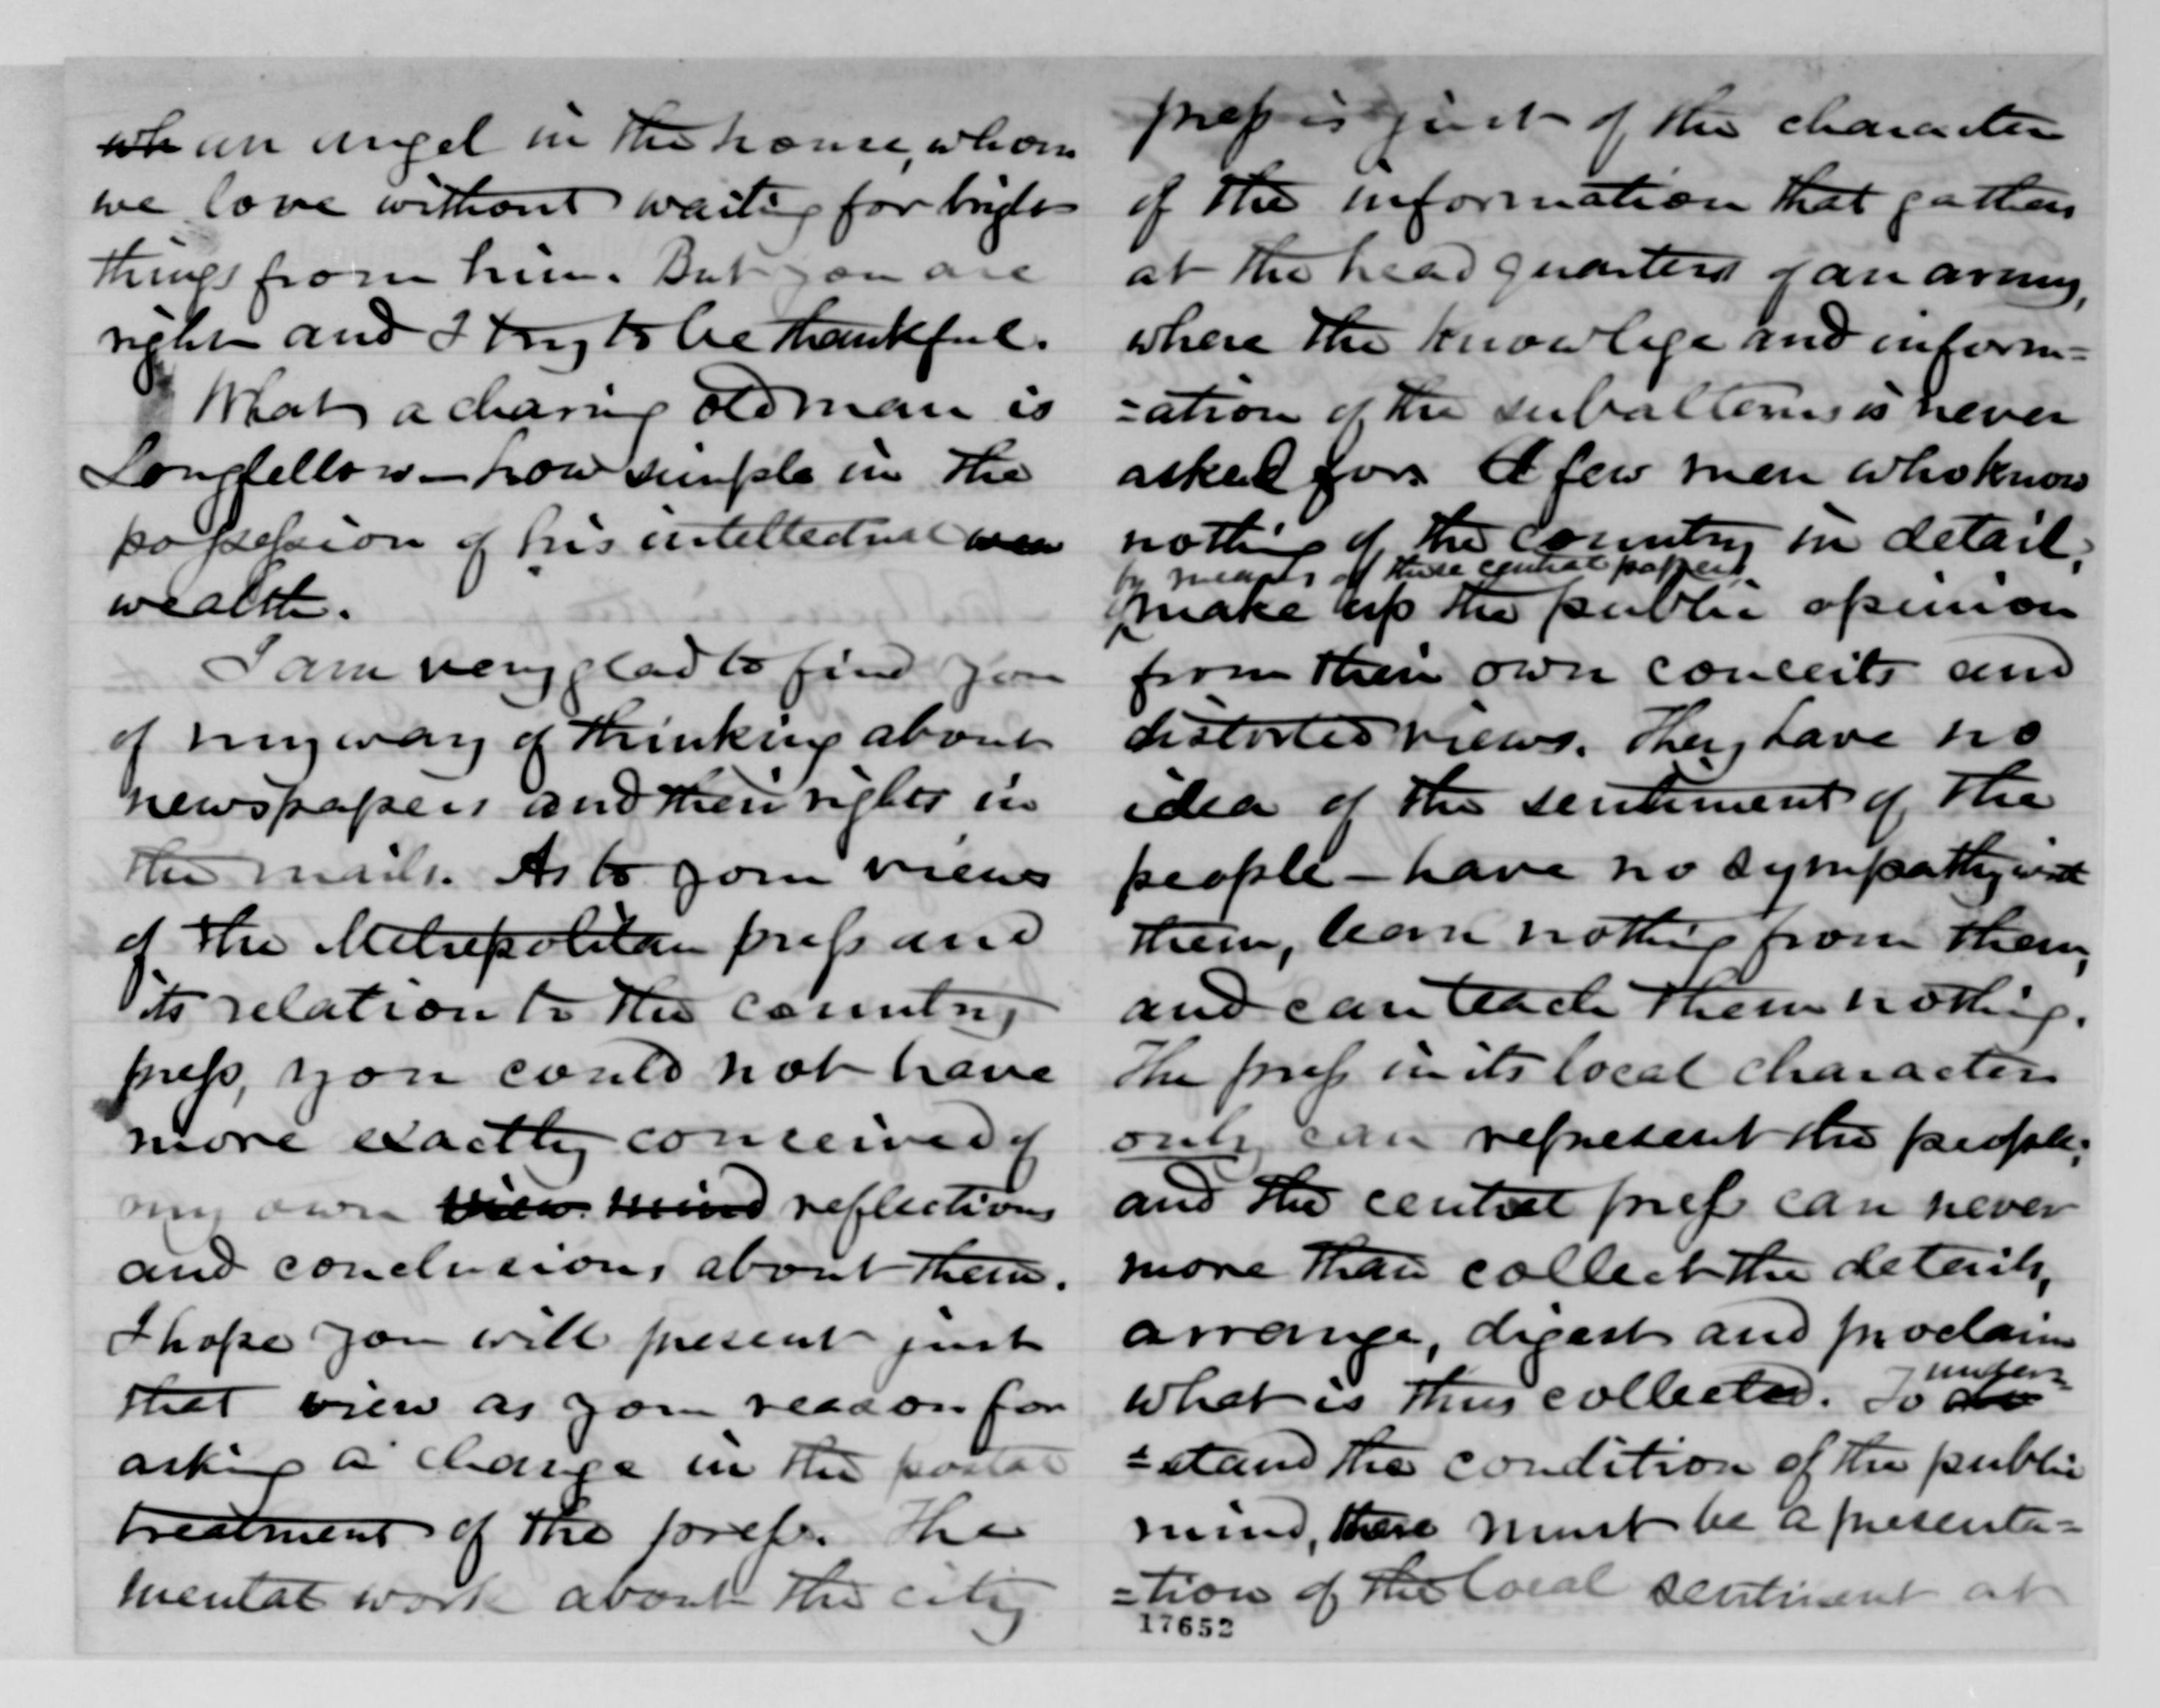 wh an angel in the house, whom
we love without waiting for bright
things from him. But you are
right and I try to be thankful.
What a charing old man is
Longfellow — how simple in the
possession of his intellectual wea
wealth.
I am very glad to find you
of my way of thinking about
newspapers and their rights in
the mails. As to your views
of the Metropolitan press and
its relation to the country
press, you could not have
more exactly conceived of
my own view mind reflections
and conclusions about them.
I hope you will present just
that view as your reason for
asking a change in the postal
treatment of the press. The
mental work about the city
press is just of the character
of the information that gathers
at the head quarters of an army,
where the knowlege and inform=
=ation of the subalterns is never
asked for. A few men who know
nothing of the country in detail,
by means of these central papers
make up the public opinion
from their own conceits and
distorted views. They have no
idea of the sentiment of the
people — have no sympathy with
them, learn nothing from them,
and can teach them nothing.
The press in its local character
only can represent the people;
and the central press can never
more than collect the details,
arrange, digest and proclaim
what is thus collected. To do under=
=stand the condition of the public
mind, there must be a presenta=
=tion of the local sentiment at
17652